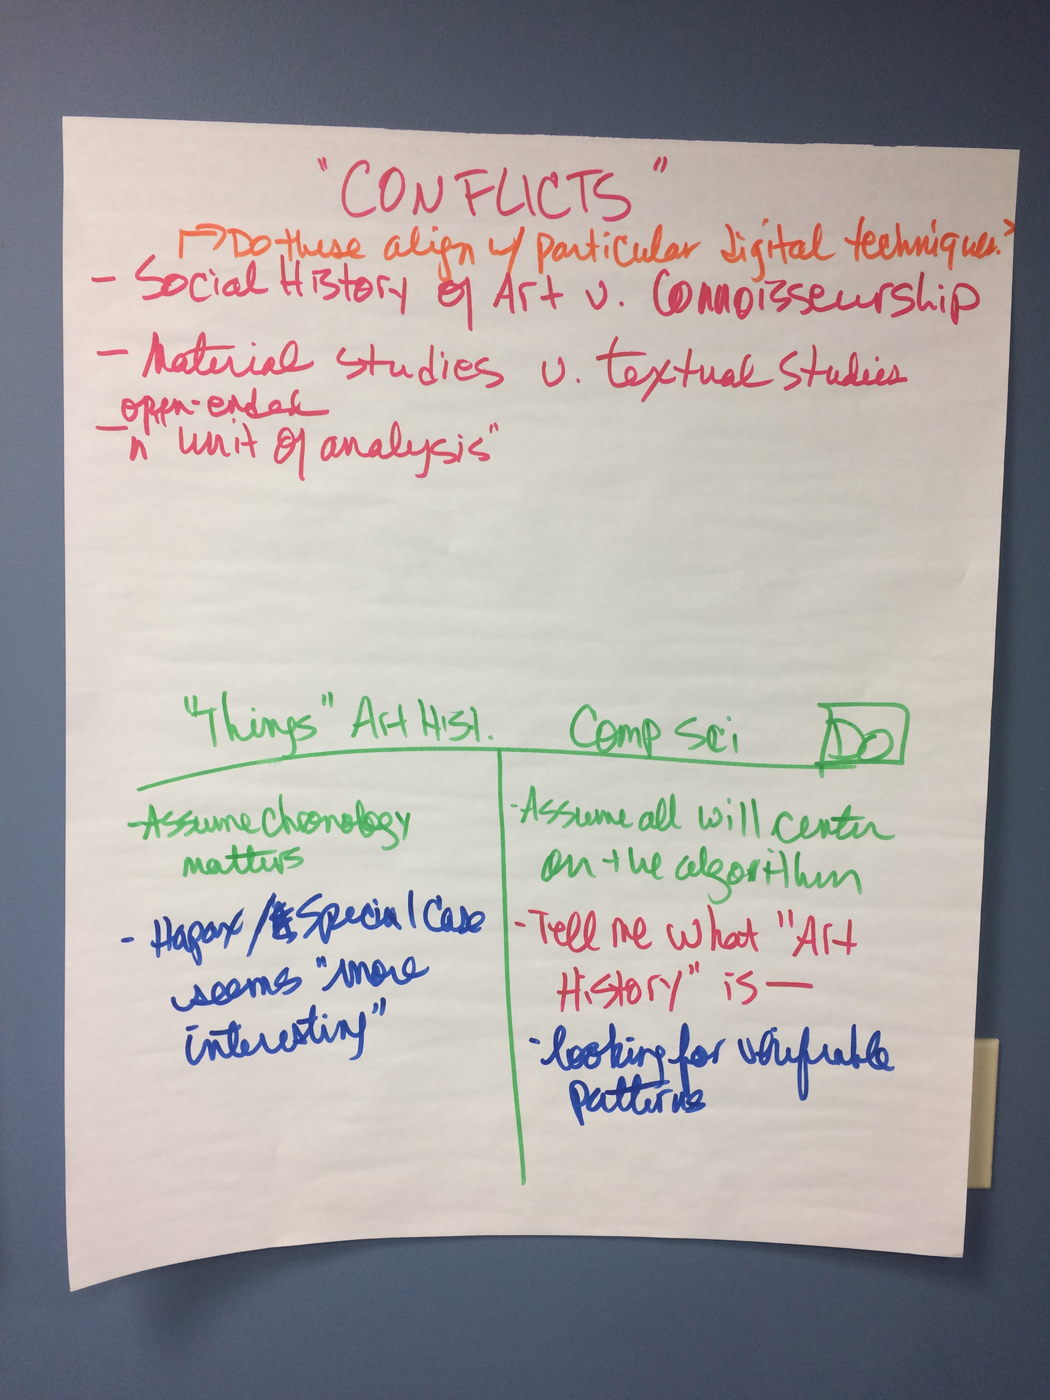 "CONFLICTS"
Do these align w/ particular digital techniques?
- Social History of Art v. Connoisseurship
- Material studies v. textual studies
open-ended
- "unit of analysis"
"Things" Art Hist. Comp Sci Do
- Assume chronology
matters
- Hapax / Special Case
seems "more
interesting"
- Assume all will center
on the algorithm
- Tell me what "Art
History" is —
- looking for verifiable
patterns